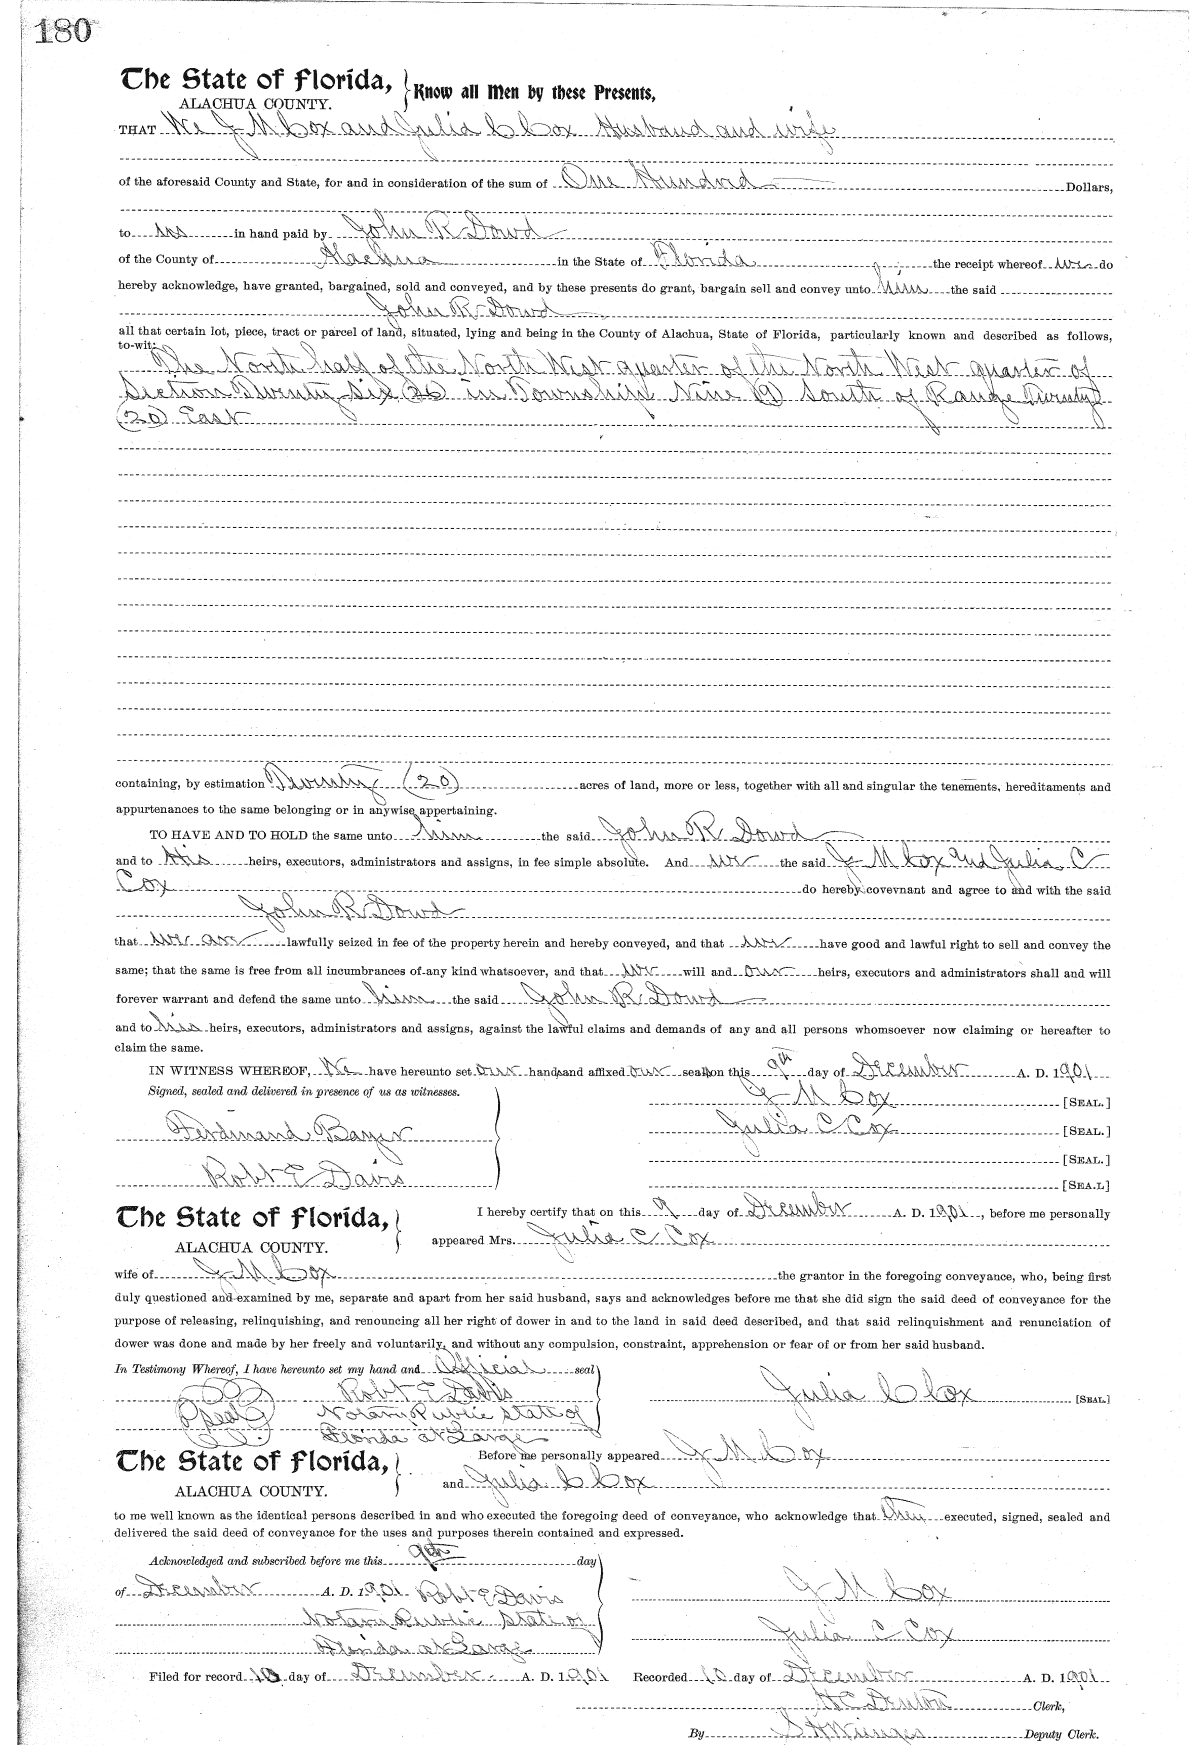 180
The State of Florida, Know all Men by these Presents,
ALACHUA COUNTY.
THAT We J M Cox and Julia C Cox Husband and wife
of the aforesaid County and State, for and in consideration of the sum of One Hundred Dollars,
to us in hand paid by John R Dowd
of the County of Alachua in the State of Florida the receipt whereof we do
hereby acknowledge, have granted, bargained, sold and conveyed, and by these presents do grant, bargain sell and convey unto him the said
John R Dowd
all that certain lot, piece, tract or parcel of land, situated, lying and being in the County of Alachua, State of Florida, particularly known and described as follows,
to-wit:
The North half of the North West quarter of the North West quarter of
Section Twenty six (26) in Township Nine (9) South of Range Twenty
(20) East
containing, by estimation Twenty (20) acres of land, more or less, together with all and singular the tenements, hereditaments and
appurtenances to the same belonging or in anywise appertaining.
TO HAVE AND TO HOLD the same unto him the said John R Dowd
and to His heirs, executors, administrators and assigns, in fee simple absolute. And we the said J M Cox and Julia C
Cox do hereby covevnant and agree to and with the said
John R Dowd
that we are lawfully seized in fee of the property herein and hereby conveyed, and that we have good and lawful right to sell and convey the
same; that the same is free from all incumbrances of any kind whatsoever, and that we will and our heirs, executors and administrators shall and will
forever warrant and defend the same unto him the said John R Dowd
and to his heirs, executors, administrators and assigns, against the lawful claims and demands of any and all persons whomsoever now claiming or hereafter to
claim the same.
IN WITNESS WHEREOF, We have hereunto set our hands and affixed our seals on this 9th day of December A. D. 1901
Signed, sealed and delivered in presence of us as witnesses. J M Cox [SEAL.]
Ferdinand Bayer Julia C Cox [SEAL.]
[SEAL.]
Robt E Davis [SEA.L]
The State of Florida, I hereby certify that on this 9 day of December A. D. 1901, before me personally
ALACHUA COUNTY. appeared Mrs. Julia C Cox
wife of J M Cox the grantor in the foregoing conveyance, who, being first
duly questioned and examined by me, separate and apart from her said husband, says and acknowledges before me that she did sign the said deed of conveyance for the
purpose of releasing, relinquishing, and renouncing all her right of dower in and to the land in said deed described, and that said relinquishment and renunciation of
dower was done and made by her freely and voluntarily, and without any compulsion, constraint, apprehension or fear of or from her said husband.
In Testimony Whereof, I have hereunto set my hand and Official seal
Robt E Davis Julia C Cox [SEAL]
Seal Notary Public State of
Florida at Large
The State of Florida, Before me personally appeared J M Cox
ALACHUA COUNTY. and Julia C Cox
to me well known as the identical persons described in and who executed the foregoing deed of conveyance, who acknowledge that they executed, signed, sealed and
delivered the said deed of conveyance for the uses and purposes therein contained and expressed.
Acknowledged and subscribed before me this 9th day
of December A. D. 1901 Robt E Davis J M Cox
Notary Public State of
Florida at Large Julia C Cox
Filed for record 10 day of December A. D. 1901 Recorded 10 day of December A. D. 1901
H C Denton Clerk,
By S H Wienges Deputy Clerk.